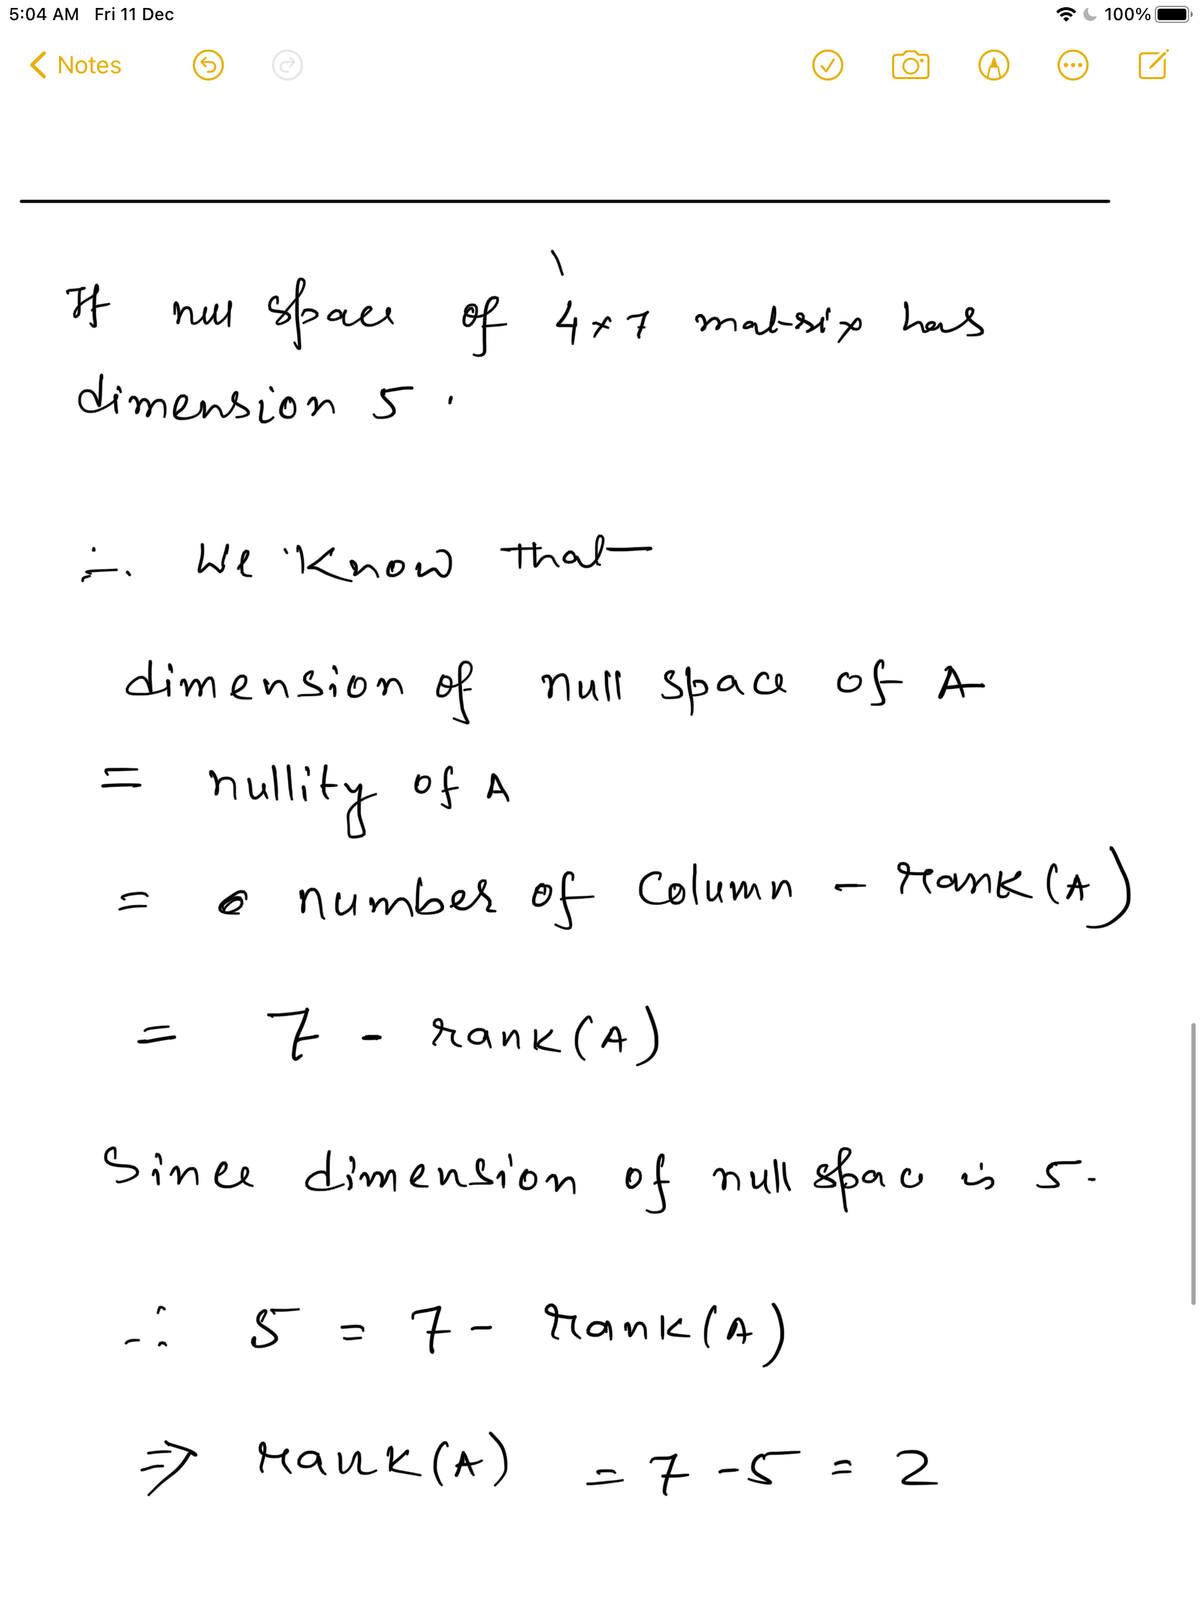 5:04 AM Fri 11 Dec 100%
Notes
If null space of 4×7 matrix has
dimension 5.
∴ We know that
dimension of null space of A
= nullity of A
= number of column - rank(A)
= 7 - rank(A)
Since dimension of null space is 5.
∴ 5 = 7 - rank(A)
⇒ rank(A) = 7 - 5 = 2